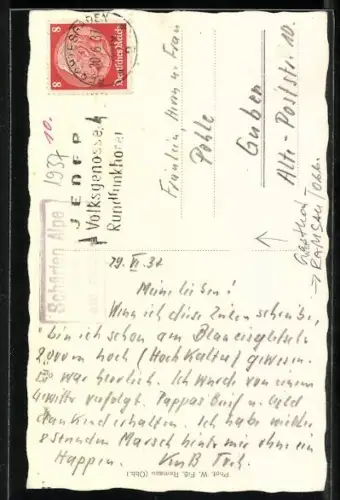 Deutsches Reich
8
8
1937
10.
JEDER
Volksgenosse
Rundfunkhörer
Schärten Alpe
Fräulein, Herrn u. Frau
Guben
Alte-Poststr. 10.
Gasthof
→ RAMSAU/Obb.
29. VI. 37
Meine lieben!
Wenn ich diese Zeilen schreibe,
bin ich schon am Blaueisgletsch.
2000 m hoch (Hochkalter) gewesen.
Es war herrlich. Ich wurde von einem
Gewitter verfolgt. Pappas Brief u. Geld
dankend erhalten. Ich habe wieder
8 Stunden Marsch hinter mir ohne ein
Happen.
Phot. W. Fiß, Ramsau (Obb.)